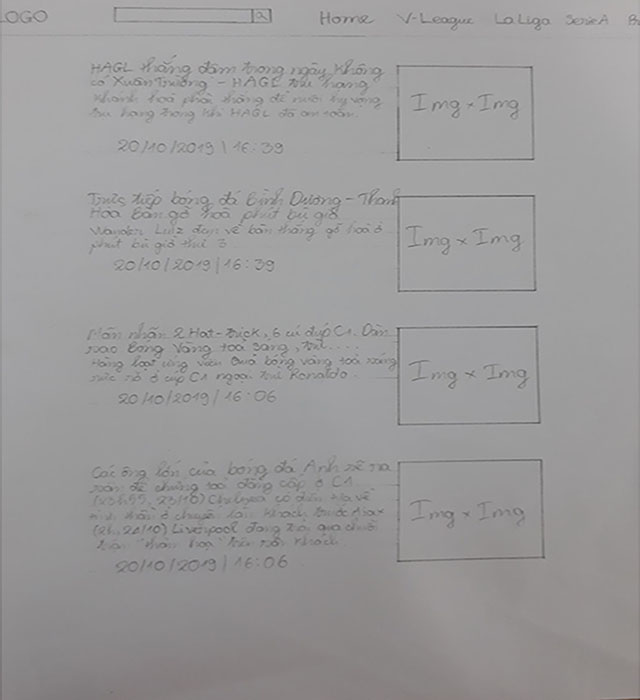 LOGO Home V-League La Liga Serie A
HAGL thắng đậm trong ngày không
có Xuân Trường - HAGL trụ hạng
Khánh hoà phải thắng để nuôi hy vọng
trụ hạng trong khi HAGL đã an toàn.
20/10/2019 | 16:39
Img x Img
Trực tiếp bóng đá Bình Dương - Thanh
Hoá Bàn gỡ hoà phút bù giờ
Wander Luiz đem về bàn thắng gỡ hoà ở
phút bù giờ thứ 3
20/10/2019 | 16:39
Img x Img
Mãn nhãn 2 Hat-trick, 6 cú đúp C1. Dàn
sao Bóng Vàng toả sáng, trừ....
Hàng loạt ứng viên Quả bóng vàng toả sáng
rực rỡ ở cúp C1 ngoại trừ Ronaldo.
20/10/2019 | 16:06
Img x Img
Các ông lớn của bóng đá Anh sẽ ra
sân để chứng tỏ đẳng cấp ở C1
23/10) Chelsea có
ở chuyến làm khách trước Ajax
(2h, 24/10) Liverpool đang trải qua chuỗi
trận trên sân khách.
20/10/2019 | 16:06
Img x Img